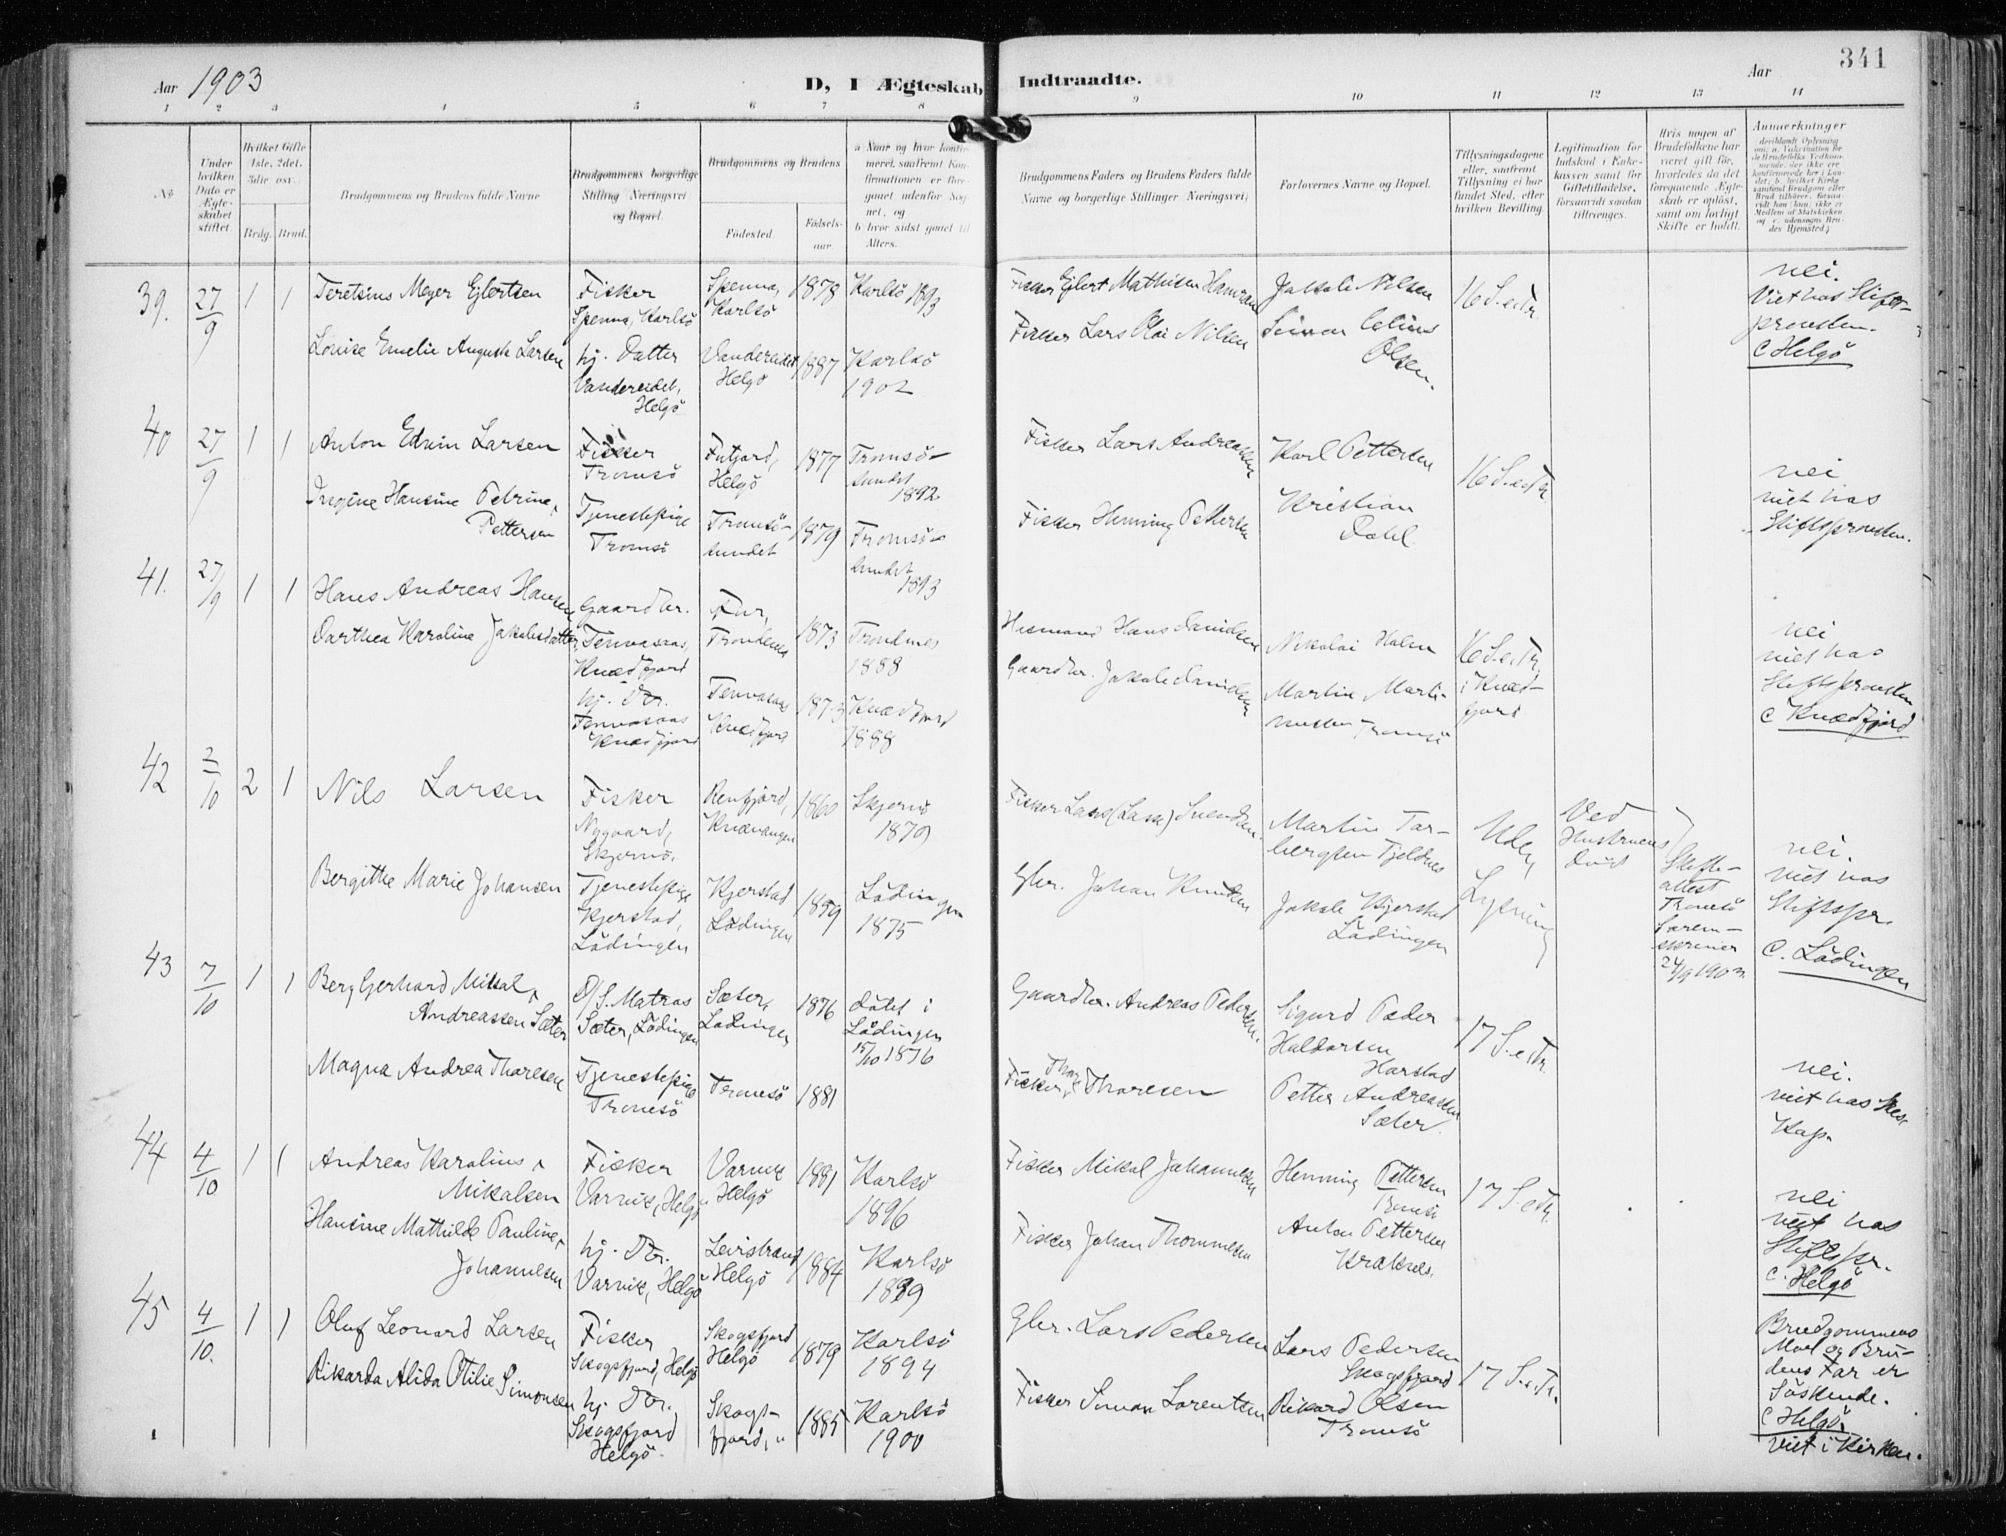 Aar 1903
D, I Ægteskab Indtraadte.
Aar
341
1 2 3 4 5 6 7 8 9 10 11 12 13 14
No
Under hvilken Dato er Ægteskabet stiftet
Hvilket Gifte 1ste, 2det, 3die osv.
Brdg. Brud.
Brudgommens og Brudens fulde Navne
Brudgommens borgerlige Stilling (Næringsvei) og Bopæl.
Brudgommens og Brudens
Fødested
Fødselsaar.
a Naar og hvor konfirmeret, saafremt Konfirmationen er foregaaet udenfor Sognet, og
b hvor sidst gaaet til Alters.
Brudgommens Faders og Brudens Faders fulde Navne og borgerlige Stillinger (Næringsvei)
Forlovernes Navne og Bopæl.
Tillysningsdagene eller, saafremt Tillysning ei har fundet Sted, efter hvilken Bevilling
Legitimation for Indskud i Enkekassen samt for Giftetilladelse, forsaavidt saadan tiltrænges.
Hvis nogen af Brudefolkene har været gift før, hvorledes da det foregaaende Ægteskab er opløst, samt om lovligt Skifte er holdt.
Anmærkninger
39. 27/9 1 1
Teretsius Meyer Ejlertsen
Fisker
Spenna, Karlsö
Spenna, Karlsö
1878
Karlsö 1893
Fisker Ejlert Mathisen Hansen
Jakob Nilsen
16 S.e.Tr.
nei.
Viet hos Stiftsprovsten.
C Helgö
Louise Emelie Auguste Larsen
hj. Datter
Vandereidet, Helgö
Vandereidet Helgö
1887
Karlsö 1902
Fisker Lars Olai Nilsen
Simon Olsen.
40 27/9 1 1
Anton Edvin Larsen
Fisker
Tromsö
Futfjord, Helgö
1877
Tromsösundet 1892
Fisker Lars Andreassen
Karl Pettersen
16 S.e.Tr.
nei
viet hos
Stiftsprovsten.
Hansine Petrine Pettersen
Tjenestepige
Tromsö
Tromsösundet
1879
Tromsösundet 1893
Fisker Henning Pettersen
Kristian Dahl
41. 27/9 1 1
Hans Andreas Hansen
Gaardbr.
Tennvasaas, Kvædfjord
Trondenes
1873
Trondenes 1888
Husmand Hans Davidsen
Nikolai Holm
16 S.e.Tr. i Kvædfjord
nei
viet hos
Stiftsprovsten
C Kvædfjord
Dorthea Karoline Jakobsdatter
hj. Dr.
Tennvasaas Kvædfjord
Tennvasaas Kvædfjord
1873
Kvædfjord 1888
Gaardbr. Jakob Davidsen
Martin Martinussen Tromsö
42 2/10 2 1
Nils Larsen
Fisker
Nygaard, Skjervö.
Renfjord, Kvænangen
1860
Skjervö 1879
Fisker Lars (Lasse) Svendsen.
Martin Torbergsen Tjeldnes
Uden Lysning
Ved Hustruens död
Skifteattest Tromsö Sorenskriver 24/9 1903.
nei.
viet hos
Stiftspr.
C. Lödingen
Bergitte Marie Johansen
Tjenestepige
Kjerstad, Lödingen
Kjerstad Lödingen
1859
Lödingen 1875
Gbr. Johan Knudsen
Jakob Kjerstad Lödingen
43 7/10 1 1
Berg Gerhard Mikal Andreassen Sæter
D/S. Matros
Sæter, Lödingen
Sæter, Lödingen
1876
döbt i Lödingen 15/10 1876
Gaardbr. Andreas Pedersen.
Sigurd Peder Haldorsen Harstad
17 S.e.Tr.
nei.
viet hos Res. Kap.
Magna Andrea Thoresen
Tjenestepige
Tromsö
Tromsö
1881
Fisker Thoresen
Petter Andreassen Sæter.
44 4/10 1 1
Andreas Karolius Mikalsen
Fisker
Varvik, Helgö
Varvik Helgö
1881
Karlsö 1896
Fisker Mikal Johannesen
Henning Pettersen Tromsö
17 S.e.Tr.
nei
viet hos
Stiftspr.
C. Helgö
Hansine Mathilde Pauline Johannesen
hj. Dr.
Varvik, Helgö
Leirstrand Helgö
1884
Karlsö 1899
Fisker Johan Thommesen
Anton Pettersen
45 4/10. 1 1
Oluf Leonard Larsen
Fisker
Skogsfjord, Helgö
Skogsfjord Helgö
1879
Karlsö 1894
Gbr. Lars Pedersen
Lars Pedersen Skogsfjord
17 S.e.Tr.
Brudgommens
Mor og Brudens Far er
Söskende.
C Helgö.
viet i Kirken.
Rikarda Alida Otilie Simonsen
hj. Dr.
Skogsfjord Helgö.
Skogsfjord, "
1885
Karlsö 1900
Fisker Simon Lorentsen
Rikard Olsen Tromsö